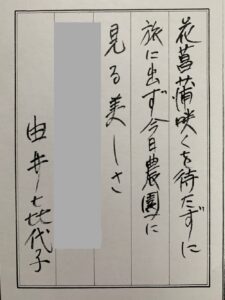 花菖蒲咲くを待たずに
旅に出ず今日農園に
見る美しさ
由井ノ七代子